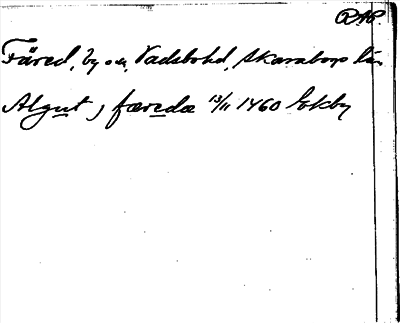 RAP
Färed, by o. sn, Vadsbohd, Skaraborgs län
Algut j færedæ 13/11 1460 Ekby